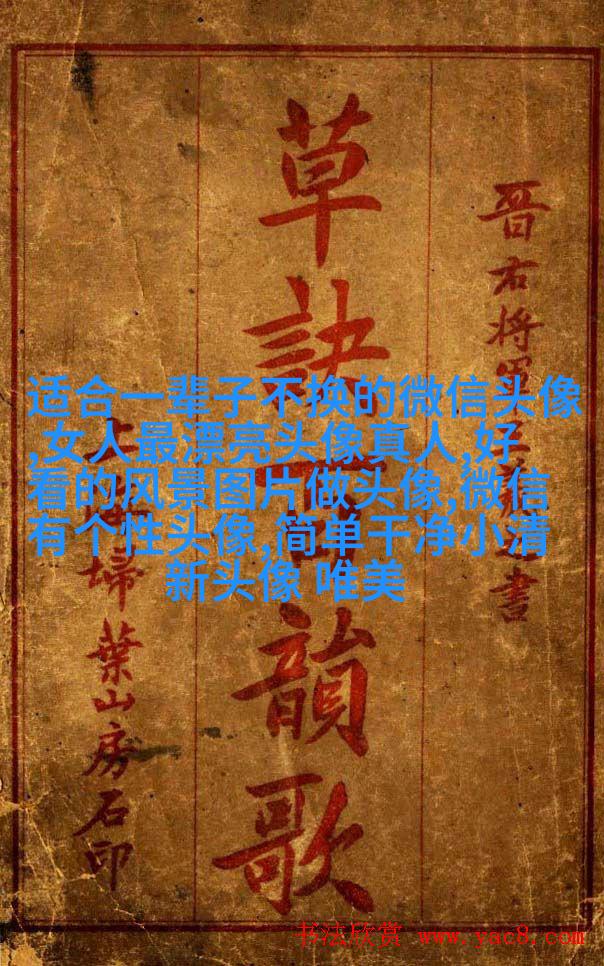 晉右将軍王羲之書
草訣百韻歌
上海掃葉山房石印
适合一辈子不换的微信头像
,女人最漂亮头像真人,好
看的风景图片做头像,微信
有个性头像,简单干净小清
新头像 唯美
书法欣赏 www.yac8.com